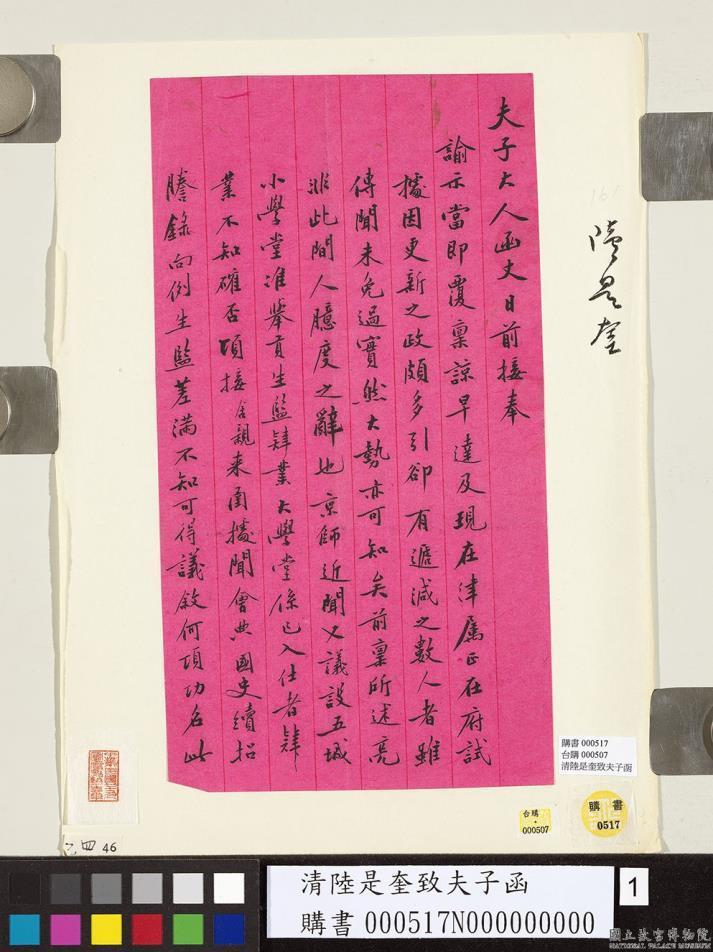 夫子大人函丈日前接奉
諭示當即覆稟諒早達及現在津屬正在府試
據因更新之政頗多引卻有遞減之數人者雖
傳聞未免過實然大勢亦可知矣前稟所述亮
非此間人臆度之辭也京師近聞又議設五城
小學堂准舉貢生監肄業大學堂係已入仕者肄
業不知確否頃接舍親來函據聞會典國史續招
謄錄向例生監差滿不知可得議敘何項功名此
161
陸是奎
購書 000517
台購 000507
清陸是奎致夫子函
台購
000507
購書
0517
乙四 46
清陸是奎致夫子函
購書 000517N000000000
1
國立故宮博物院
NATIONAL PALACE MUSEUM